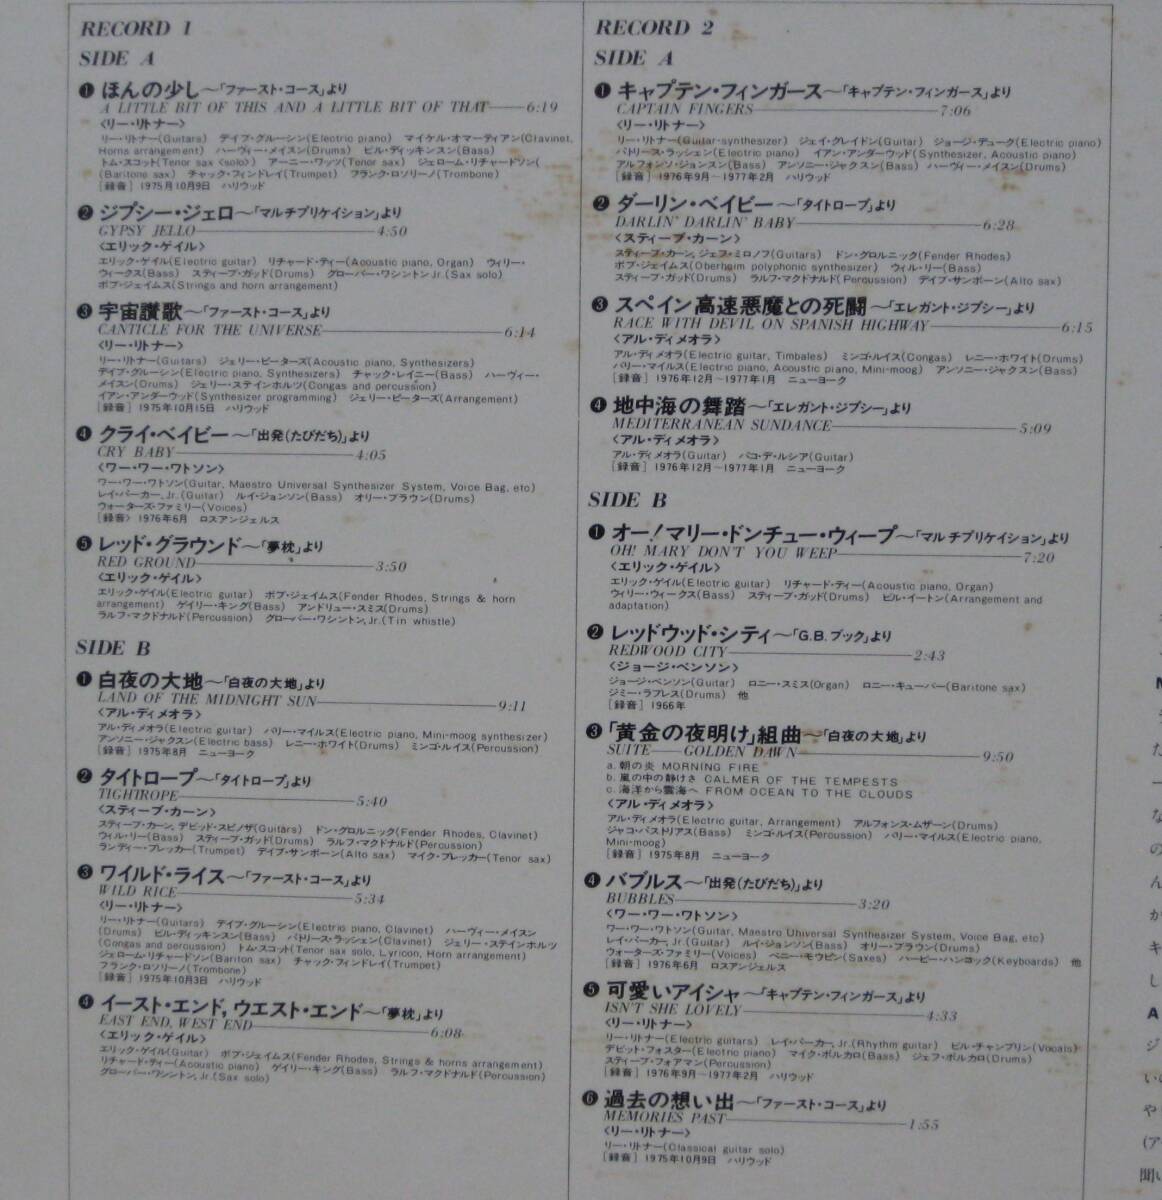 RECORD 1
SIDE A
❶ ほんの少し〜「ファースト・コース」より
A LITTLE BIT OF THIS AND A LITTLE BIT OF THAT——6:19
〈リー・リトナー〉
リー・リトナー(Guitars) デイブ・グルーシン(Electric piano) マイケル・オマーティアン(Clavinet,
Horns arrangement) ハーヴィー・メイスン(Drums) ビル・ディッキンスン(Bass)
トム・スコット(Tenor sax 〈solo〉) アーニー・ワッツ(Tenor sax) ジェローム・リチャードソン(
(Baritone sax) チャック・フィンドレイ(Trumpet) フランク・ロソリーノ(Trombone)
[録音] 1975月10月9日 ハリウッド
❷ ジプシー・ジェロ〜「マルチプリケイション」より
GYPSY JELLO——4:50
〈エリック・ゲイル〉
エリック・ゲイル(Electric guitar) リチャード・ティー(Acoustic piano, Organ) ウィリー・
ウィークス(Bass) スティーブ・ガッド(Drums) グローバー・ワシントン Jr.(Sax solo)
ボブ・ジェイムス(Strings and horn arrangement)
❸ 宇宙讃歌〜「ファースト・コース」より
CANTICLE FOR THE UNIVERSE——6:14
〈リー・リトナー〉
リー・リトナー(Guitars) ジェリー・ピーターズ(Acoustic piano, Synthesizers)
デイブ・グルーシン(Electric piano, Synthesizers) チャック・レイニー(Bass) ハーヴィー・
メイスン(Drums) ジェリー・ステインホルツ(Congas and percussion)
イアン・アンダーウッド(Synthesizer programming) ジェリー・ピーターズ(Arrangement)
[録音] 1975年10月15日 ハリウッド
❹ クライ・ベイビー〜「出発(たびだち)」より
CRY BABY——4:05
〈ワー・ワー・ワトソン〉
ワー・ワー・ワトソン(Guitar, Maestro Universal Synthesizer System, Voice Bag, etc)
レイ・パーカー, Jr.(Guitar) ルイ・ジョンソン(Bass) オリー・ブラウン(Drums)
ウォーターズ・ファミリー(Voices)
[録音〉 1976年6月 ロスアンジェルス
❺ レッド・グラウンド〜「夢枕」より
RED GROUND——3:50
〈エリック・ゲイル〉
エリック・ゲイル(Electric guitar) ボブ・ジェイムス(Fender Rhodes, Strings & horn
arrangement) ゲイリー・キング(Bass) アンドリュー・スミス(Drums)
ラルフ・マクドナルド(Percussion) グローバー・ワシントン, Jr.(Tin whistle)
SIDE B
❶ 白夜の大地〜「白夜の大地」より
LAND OF THE MIDNIGHT SUN——9:11
〈アル・ディ メオラ〉
アル・ディ メオラ(Electric guitar) バリー・マイルス(Electric piano, Mini-moog synthesizer)
アンソニー・ジャクスン(Electric bass) レニー・ホワイト(Drums) ミンゴ・ルイス(Percussion)
[録音] 1975年8月 ニューヨーク
❷ タイトロープ〜「タイトロープ」より
TIGHTROPE——5:40
〈スティーブ・カーン〉
スティーブ・カーン, デビッド・スピノザ(Guitars) ドン・グロルニック(Fender Rhodes, Clavinet)
ウィル・リー(Bass) スティーブ・ガッド(Drums) ラルフ・マクドナルド(Percussion)
ランディー・ブレッカー(Trumpet) デイブ・サンボーン(Alto sax) マイク・ブレッカー(Tenor sax)
❸ ワイルド・ライス〜「ファースト・コース」より
WILD RICE——5:34
〈リー・リトナー〉
リー・リトナー(Guitars) デイブ・グルーシン(Electric piano, Clavinet) ハーヴィー・メイスン
(Drums) ビル・ディッキンスン(Bass) パトリース・ラッシェン(Clavinet) ジェリー・ステインホルツ
(Congas and percussion) トム・スコット(Tenor sax solo, Lyricon, Horn arrangement)
ジェローム・リチャードソン(Bariton sax) チャック・フィンドレイ(Trumpet)
フランク・ロソリーノ(Trombone)
[録音] 1975年10月3日 ハリウッド
❹ イースト・エンド, ウエスト・エンド〜「夢枕」より
EAST END, WEST END——6:08
〈エリック・ゲイル〉
エリック・ゲイル(Guitar) ボブ・ジェイムス(Fender Rhodes, Strings & horns arrangement)
リチャード・ティー(Acoustic piano) ゲイリー・キング(Bass) ラルフ・マクドナルド(Percussion)
グローバー・ワシントン, Jr.(Sax solo)
RECORD 2
SIDE A
❶ キャプテン・フィンガース〜「キャプテン・フィンガース」より
CAPTAIN FINGERS——7:06
〈リー・リトナー〉
リー・リトナー(Guitar-synthesizer) ジェイ・グレイドン(Guitar) ジョージ・デューク(Electric piano)
パトリース・ラッシェン(Electric piano) イアン・アンダーウッド(Synthesizer, Acoustic piano)
アルフォンソ・ジョンスン(Bass) アンソニー・ジャクスン(Bass) ハーヴィー・メイスン(Drums)
[録音] 1976年9月〜1977年2月 ハリウッド
❷ ダーリン・ベイビー〜「タイトロープ」より
DARLIN' DARLIN' BABY——6:28
〈スティーブ・カーン〉
スティーブ・カーン, ジェフ・ミロノフ(Guitars) ドン・グロルニック(Fender Rhodes)
ボブ・ジェイムス(Oberheim polyphonic synthesizer) ウィル・リー(Bass)
スティーブ・ガッド(Drums) ラルフ・マクドナルド(Percussion) デイブ・サンボーン(Alto sax)
❸ スペイン高速悪魔との死闘〜「エレガント・ジプシー」より
RACE WITH DEVIL ON SPANISH HIGHWAY——6:15
〈アル・ディ メオラ〉
アル・ディ メオラ(Electric guitar, Timbales) ミンゴ・ルイス(Congas) レニー・ホワイト(Drums)
バリー・マイルス(Electric piano, Acoustic piano, Mini-moog) アンソニー・ジャクスン(Bass)
[録音] 1976年12月〜1977年1月 ニューヨーク
❹ 地中海の舞踏〜「エレガント・ジプシー」より
MEDITERRANEAN SUNDANCE——5:09
〈アル・ディ メオラ〉
アル・ディ メオラ(Guitar) パコ・デ・ルシア(Guitar)
[録音] 1976年12月〜1977年1月 ニューヨーク
SIDE B
❶ オー!マリー・ドンチュー・ウィープ〜「マルチプリケイション」より
OH! MARY DON'T YOU WEEP——7:20
〈エリック・ゲイル〉
エリック・ゲイル(Electric guitar) リチャード・ティー(Acoustic piano, Organ)
ウィリー・ウィークス(Bass) スティーブ・ガッド(Drums) ビル・イートン(Arrangement and
adaptation)
❷ レッドウッド・シティ〜「G.B.ブック」より
REDWOOD CITY——2:43
〈ジョージ・ベンソン〉
ジョージ・ベンソン(Guitar) ロニー・スミス(Organ) ロニー・キューバー(Baritone sax)
ジミー・ラブレス(Drums) 他
[録音] 1966年
❸ 「黄金の夜明け」組曲〜「白夜の大地」より
SUITE——GOLDEN DAWN——9:50
a. 朝の炎 MORNING FIRE
b. 嵐の中の静けさ CALMER OF THE TEMPESTS
c. 海洋から雲海へ FROM OCEAN TO THE CLOUDS
〈アル・ディ メオラ〉
アル・ディ メオラ(Electric guitar, Arrangement) アルフォンス・ムザーン(Drums)
ジャコ・パストリアス(Bass) ミンゴ・ルイス(Percussion) バリー・マイルス(Electric piano,
Mini-moog)
[録音] 1975年8月 ニューヨーク
❹ バブルス〜「出発(たびだち)」より
BUBBLES——3:20
〈ワー・ワー・ワトソン〉
ワー・ワー・ワトソン(Guitar, Maestro Universal Synthesizer System, Voice Bag, etc)
レイ・パーカー, Jr.(Guitar) ルイ・ジョンソン(Bass) オリー・ブラウン(Drums)
ウォーターズ・ファミリー(Voices) ベニー・モウピン(Saxes) ハービー・ハンコック(Keyboards) 他
[録音] 1976年6月 ロスアンジェルス
❺ 可愛いアイシャ〜「キャプテン・フィンガース」より
ISN'T SHE LOVELY——4:33
〈リー・リトナー〉
リー・リトナー(Electric guitars) レイ・パーカー, Jr.(Rhythm guitar) ビル・チャンプリン(Vocals)
デビット・フォスター(Electric piano) マイク・ポルカロ(Bass) ジェフ・ポルカロ(Drums)
スティーブ・フォアマン(Percussion)
[録音] 1976年9月〜1977年2月 ハリウッド
❻ 過去の想い出〜「ファースト・コース」より
MEMORIES PAST——1:55
〈リー・リトナー〉
リー・リトナー(Classical guitar solo)
[録音] 1975年10月9日 ハリウッド